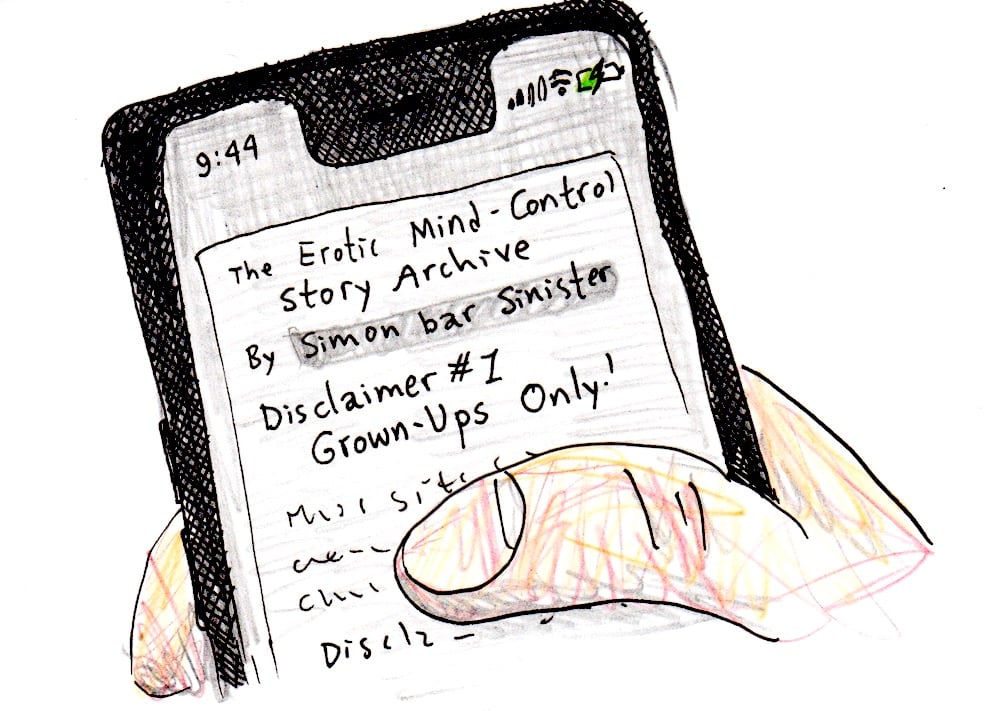 9:44
The Erotic Mind-Control
Story Archive
By Simon bar Sinister
Disclaimer #1
Grown-Ups Only!
site